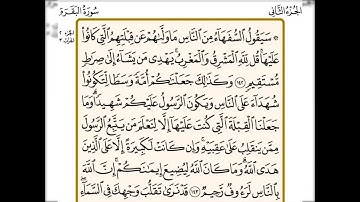 الجزء الثاني سورة البقرة
۞ سَيَقُولُ ٱلسُّفَهَآءُ مِنَ ٱلنَّاسِ مَا وَلَّىٰهُمْ عَن قِبْلَتِهِمُ ٱلَّتِى كَانُوا۟
عَلَيْهَا ۚ قُل لِّلَّهِ ٱلْمَشْرِقُ وَٱلْمَغْرِبُ ۚ يَهْدِى مَن يَشَآءُ إِلَىٰ صِرَٰطٍ
مُّسْتَقِيمٍ ١٤٢ وَكَذَٰلِكَ جَعَلْنَـٰكُمْ أُمَّةً وَسَطًا لِّتَكُونُوا۟
شُهَدَآءَ عَلَى ٱلنَّاسِ وَيَكُونَ ٱلرَّسُولُ عَلَيْكُمْ شَهِيدًا ۗ وَمَا
جَعَلْنَا ٱلْقِبْلَةَ ٱلَّتِى كُنتَ عَلَيْهَآ إِلَّا لِنَعْلَمَ مَن يَتَّبِعُ ٱلرَّسُولَ
مِمَّن يَنقَلِبُ عَلَىٰ عَقِبَيْهِ ۚ وَإِن كَانَتْ لَكَبِيرَةً إِلَّا عَلَى ٱلَّذِينَ
هَدَى ٱللَّهُ ۗ وَمَا كَانَ ٱللَّهُ لِيُضِيعَ إِيمَـٰنَكُمْ ۚ إِنَّ ٱللَّهَ
بِٱلنَّاسِ لَرَءُوفٌ رَّحِيمٌ ١٤٣ قَدْ نَرَىٰ تَقَلُّبَ وَجْهِكَ فِى ٱلسَّمَآءِ ۖ